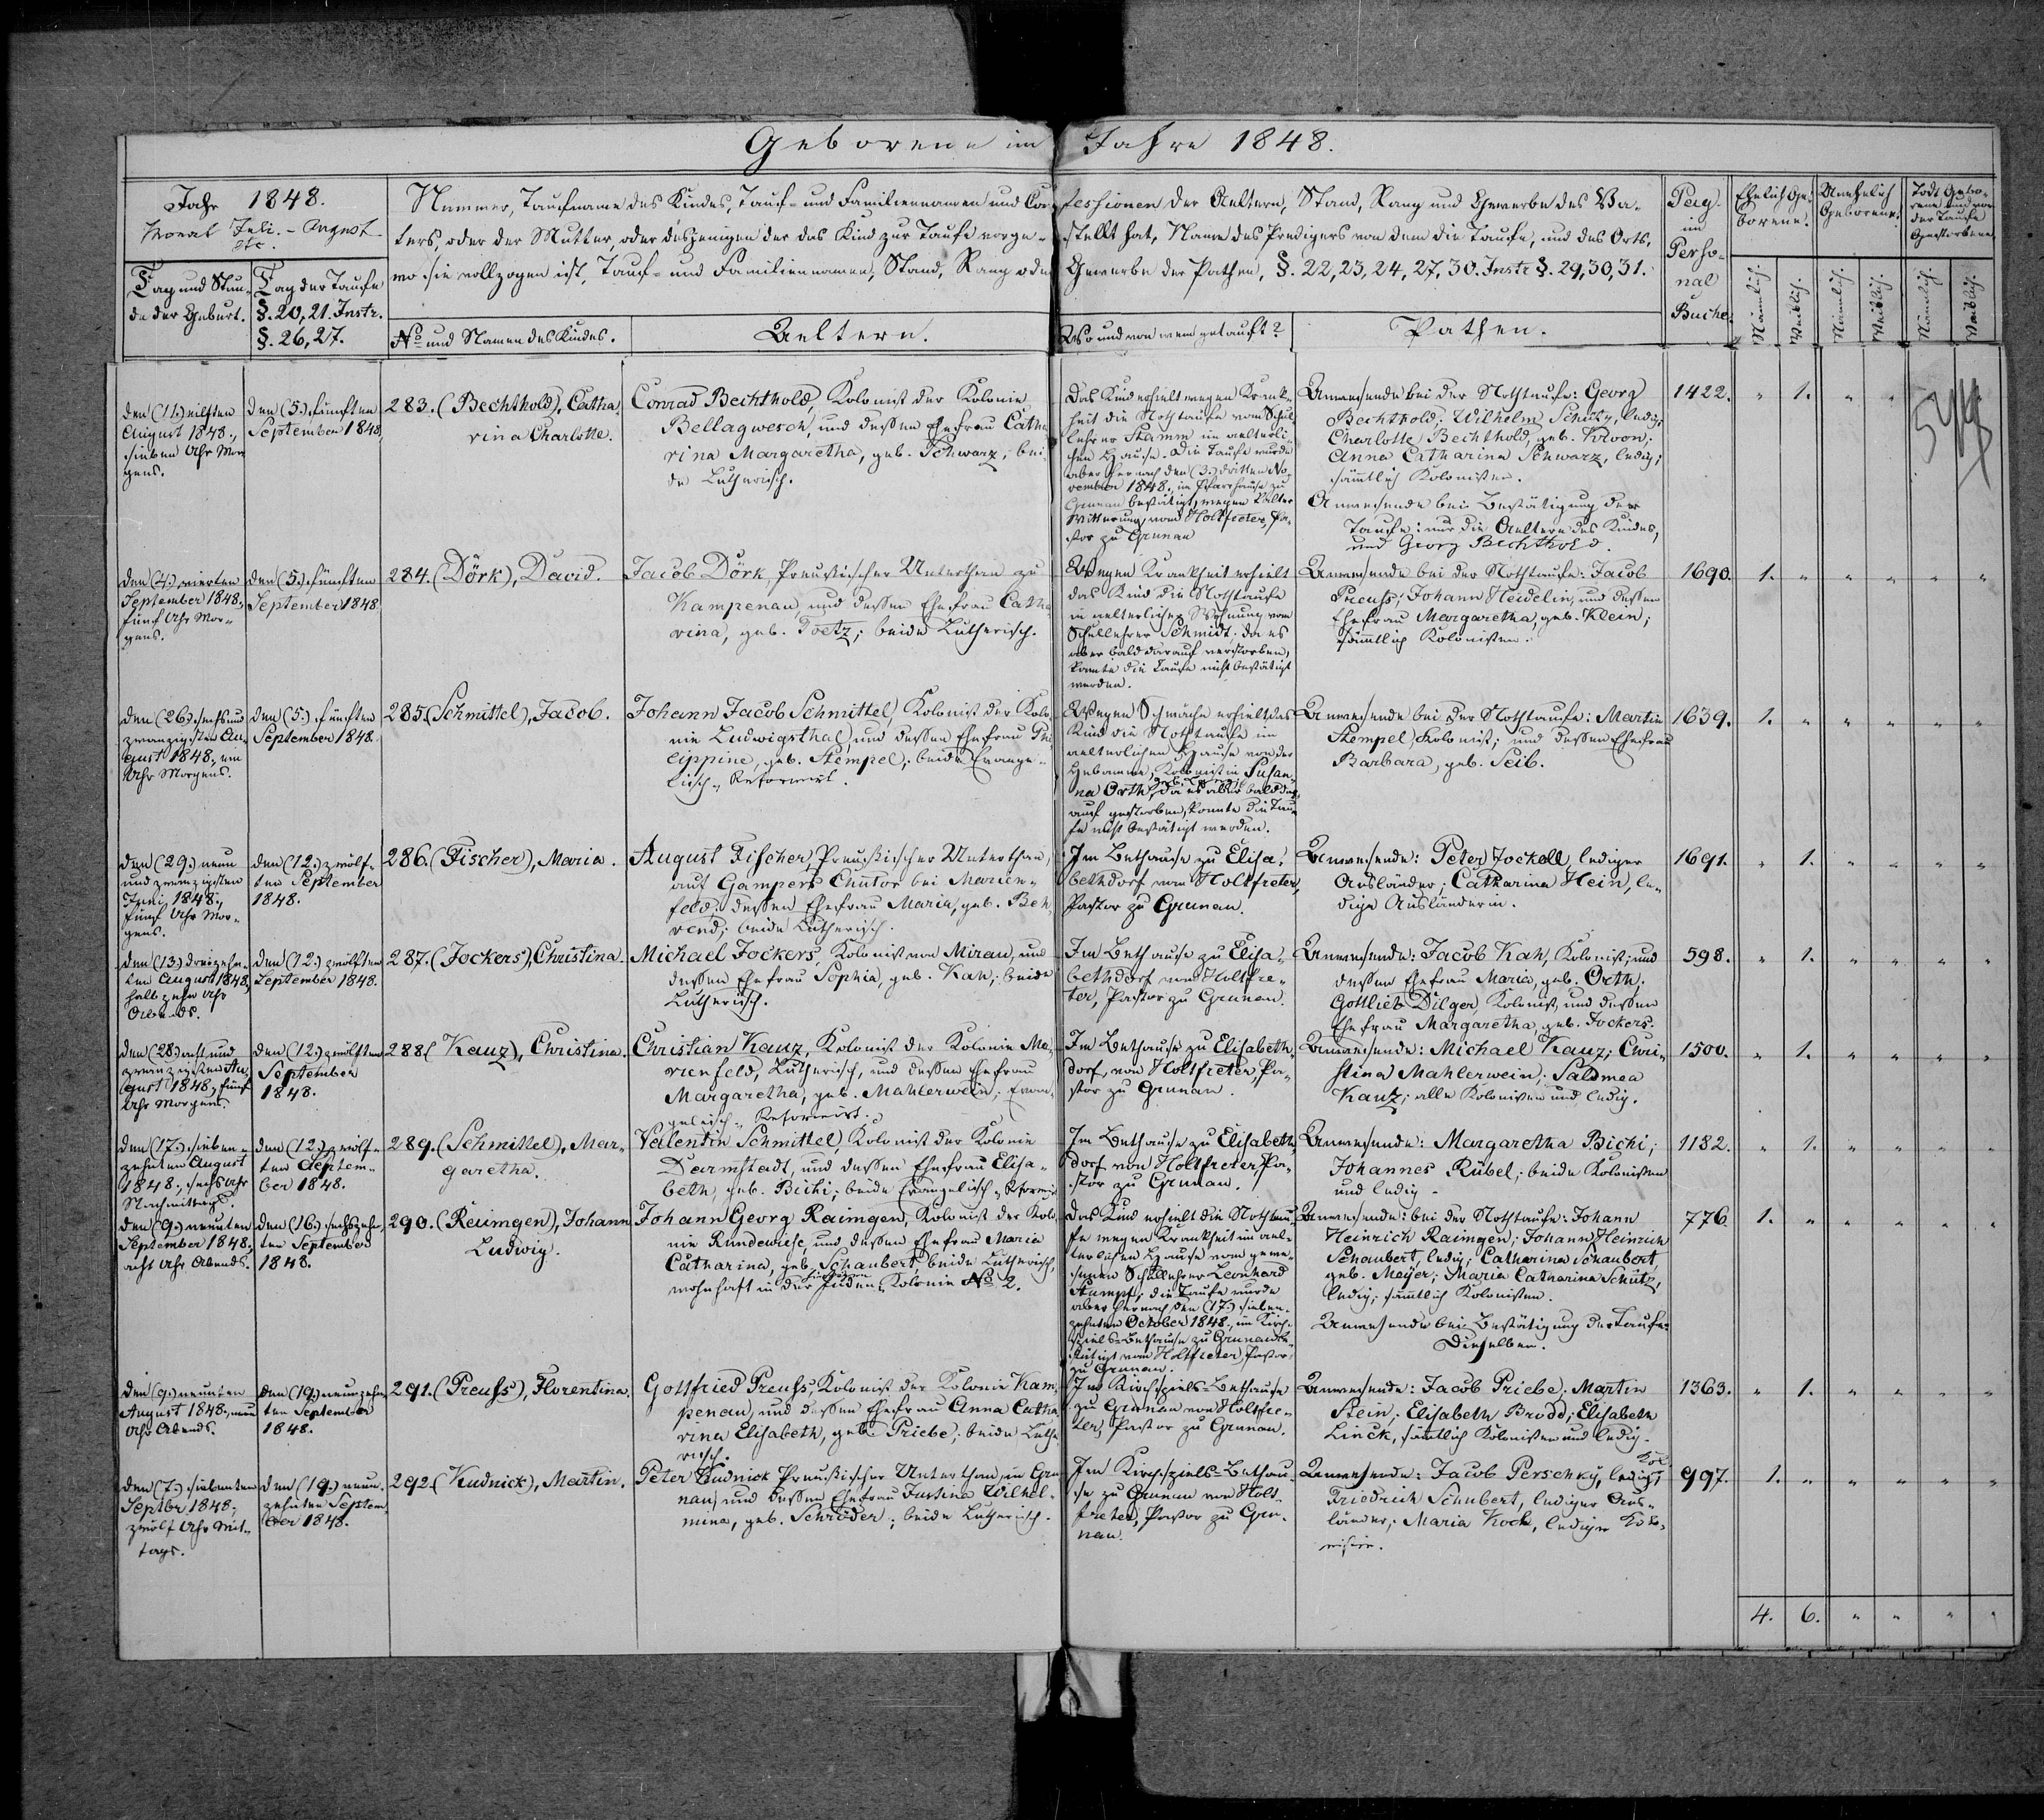 Geborene im Jahre 1848.
Jahr 1848.
Monat Juli. - August
etc.
Tag und Stun-
de der Geburt.
Tag der Taufe
§. 20, 21. Instr.
§. 26, 27.
Nummer, Taufname des Kindes, Tauf- und Familiennamen und Con-
fessionen der Aeltern, Stand, Rang und Gewerbe des Va-
ters, oder der Mutter, oder desjenigen der das Kind zur Taufe vorge-
stellt hat, Name des Predigers von dem die Taufe, und des Orts,
wo sie vollzogen ist, Tauf- und Familiennamen, Stand, Rang oder
Gewerbe der Pathen, §. 22, 23, 24, 27, 30. Instr §. 29, 30, 31.
No und Namen des Kindes.
Aeltern.
Wo und von wem getauft?
Pathen.
Pag.
im
Perso-
nal
Buche.
Ehelich Ge-
borene.
Unehelich
Geborene.
Todt Gebo-
rene und vor
der Taufe
Gestorbene.
Männlich.
Weiblich.
Männlich.
Weiblich.
Männlich.
Weiblich.
den (11.) eilften
August 1848.,
sieben Uhr Mor-
gens.
den (5.) fünften
September 1848.
283. (Bechthold), Catha-
rina Charlotte.
Conrad Bechthold, Kolonist der Kolonie
Bellagwesch, und dessen Ehefrau Catha-
rina Margaretha, geb. Schwarz; bei-
de Lutherisch.
Das Kind erhielt wegen Krank-
heit die Nothtaufe vom Schul-
lehrer Stamm im aelterli-
chen Hause. Die Taufe wurde
aber hernach den (3.) dritten No-
vember 1848., im Pfarrhause zu
Grunau bestätigt, wegen kalter
Witterung, vom Holtfreter, Pa-
stor zu Grunau
Anwesende bei der Nothtaufe: Georg
Bechthold; Wilhelm Schütz, ledig;
Charlotte Bechthold, geb. Kroon;
Anna Catharina Schwarz, ledig;
sämtlich Kolonisten.
Anwesende bei Bestätigung der
Taufe: nur die Aeltern des Kindes,
und Georg Bechthold.
1422. " 1. " "
544
den (4.) vierten
September 1848.,
fünf Uhr Mor-
gens.
den (5.) fünften
September 1848
284. (Dörk), David.
Jacob Dörk, Preußischer Unterthan zu
Kampenau, und dessen Ehefrau Catha-
rina, geb. Poetz; beide Lutherisch.
Wegen Krankheit erhielt
das Kind die Nothtaufe
in aelterlicher Wohnung vom
Schullehrer Schmidt. da es
aber bald darauf verstorben,
konnte die Taufe nicht bestätigt
werden.
Anwesende bei der Nothtaufe: Jacob
Preuss; Johann Heidelin, und dessen
Ehefrau Margaretha, geb. Klein;
sämtlich Kolonisten.
1690. 1. " " " " "
den (26.) sechs und
zwanzigsten Au-
gust 1848., ein
Uhr Morgens.
den (5.) fünften
September 1848.
285. (Schmittel), Jacob.
Johann Jacob Schmittel, Kolonist der Kolo-
nie Ludwigsthal, und dessen Ehefrau Phi-
lippine, geb. Stempel; beide Evange-
lisch-Reformirt.
Wegen Schwäche erhielt das
Kind die Nothtaufe im
aelterlichen Hause von der
Hebamme, Kolonistin Susan-
na Orth, da es aber bald dar-
auf gestorben, konnte die Tau-
fe nicht bestätigt werden.
Anwesende bei der Nothtaufe: Martin
Stempel, Kolonist; und dessen Ehefrau
Barbara, geb. Seib.
1639. 1. " " " " "
den (29.) neun
und zwanzigsten
Juni 1848.,
fünf Uhr Mor-
gens.
den (12.) zwölf-
ten September
1848.
286. (Fischer), Maria.
August Fischer, Preußischer Unterthan,
auf Gampers Chutor bei Marien-
feld, dessen Ehefrau Maria, geb. Beh-
rend; beide Lutherisch.
Im Bethause zu Elisa-
bethdorf vom Holtfreter,
Pastor zu Grunau.
Anwesende: Peter Jockell, lediger
Ausländer; Catharina Hein, le-
dige Ausländerin.
1691. " 1. " " " "
den (13.) dreizehn-
ten August 1848,
halb zehn Uhr
Abends.
den (12.) zwölften
September 1848.
287. (Jockers), Christina.
Michael Jockers, Kolonist von Mirau, und
dessen Ehefrau Sophia, geb. Kah; beide
Lutherisch.
Im Bethause zu Elisa-
bethdorf vom Holtfre-
ter, Pastor zu Grunau.
Anwesende: Jacob Kah, Kolonist; und
dessen Ehefrau Maria, geb. Orth;
Gottlieb Dilger, Kolonist, und dessen
Ehefrau Margaretha, geb. Jockers.
598. " 1. " " " "
den (28.) acht und
zwanzigsten Au-
gust 1848., fünf
Uhr Morgens.
den (12.) zwölften
September
1848.
288. (Kauz), Christina.
Christian Kauz, Kolonist der Kolonie Ma-
rienfeld, Lutherisch, und dessen Ehefrau
Margaretha, geb. Mahlerwein; Evan-
gelisch-Reformirt.
Im Bethause zu Elisabeth-
dorf, von Holtfreter, Pa-
stor zu Grunau.
Anwesende: Michael Kauz; Chri-
stina Mahlerwein; Salomea
Kauz; alle Kolonisten und ledig.
1500. " 1. " " " "
den (17.) sieben-
zehnten August
1848., sechs Uhr
Nachmittags.
den (12.) zwölf-
ten Septem-
ber 1848.
289. (Schmittel), Mar-
garetha.
Valentin Schmittel, Kolonist der Kolonie
Darmstadt, und dessen Ehefrau Elisa-
beth, geb. Bichi; beide Evangelisch-Reformirt
Im Bethause zu Elisabeth-
dorf von Holtfreter, Pa-
stor zu Grunau.
Anwesende: Margaretha Bichi;
Johannes Rübel; beide Kolonisten
und ledig.
1182. " 1. " " " "
den (9.) neunten
September 1848.
acht Uhr Abends.
den (16.) sechszehn-
ten September
1848.
290. (Raimgen), Johann
Ludwig.
Johann Georg Raimgen, Kolonist der Kolo-
nie Rundewiese, und dessen Ehefrau Maria
Catharina, geb. Schaubert; beide Lutherisch,
wohnhaft in der Juden-Kolonie No 2.
Das Kind erhielt die Nothtau-
fe wegen Krankheit im ael-
terlichen Hause vom gewe-
senen Schullehrer Leonhard
Stumpf; die Taufe wurde
aber hernach den (17.) sieben-
zehnten October 1848., im Kirch-
spiels-Bethause zu Grunau be-
stätigt vom Holtfreter, Pastor
zu Grunau.
Anwesende: bei der Nothtaufe: Johann
Heinrich Raimgen; Johann Heinrich
Schaubert, ledig; Catharina Schaubert,
geb. Meyer; Maria Catharina Schütz,
ledig; sämtlich Kolonisten.
Anwesende bei Bestätigung der Taufe:
Dieselben.
776. 1. " " " " "
den (9.) neunten
August 1848., neun
Uhr Abends.
den (19.) neunzehn-
ten September
1848.
291. (Preuss), Florentina.
Gottfried Preuss, Kolonist der Kolonie Kam-
penau, und dessen Ehefrau Anna Catha-
rina Elisabeth, geb. Priebe; beide Luthe-
risch.
Im Kirchspiels-Bethause
zu Grunau von Holtfre-
ter, Pastor zu Grunau.
Anwesende: Jacob Priebe; Martin
Stein; Elisabeth Brodd; Elisabeth
Linck, sämtlich Kolonisten und ledig.
1363. " 1. " " " "
den (7.) siebenten
Septbr. 1848.,
zwölf Uhr Mit-
tags.
den (19.) neun-
zehnten Septem-
ber 1848.
292. (Kudnick), Martin.
Peter Kudnick Preußischer Unterthan, in Gru-
nau, und dessen Ehefrau Justina Wilhel-
mina, geb. Schröder; beide Lutherisch.
Im Kirchspiels-Bethau-
se zu Grunau von Holt-
freter, Pastor zu Gru-
nau.
Anwesende: Jacob Perschky, lediger Kol.
Friedrich Schubert, lediger Aus-
länder; Maria Koch, ledige Kolo-
nistin.
997. 1. " " " " "
4. 6. " " " "